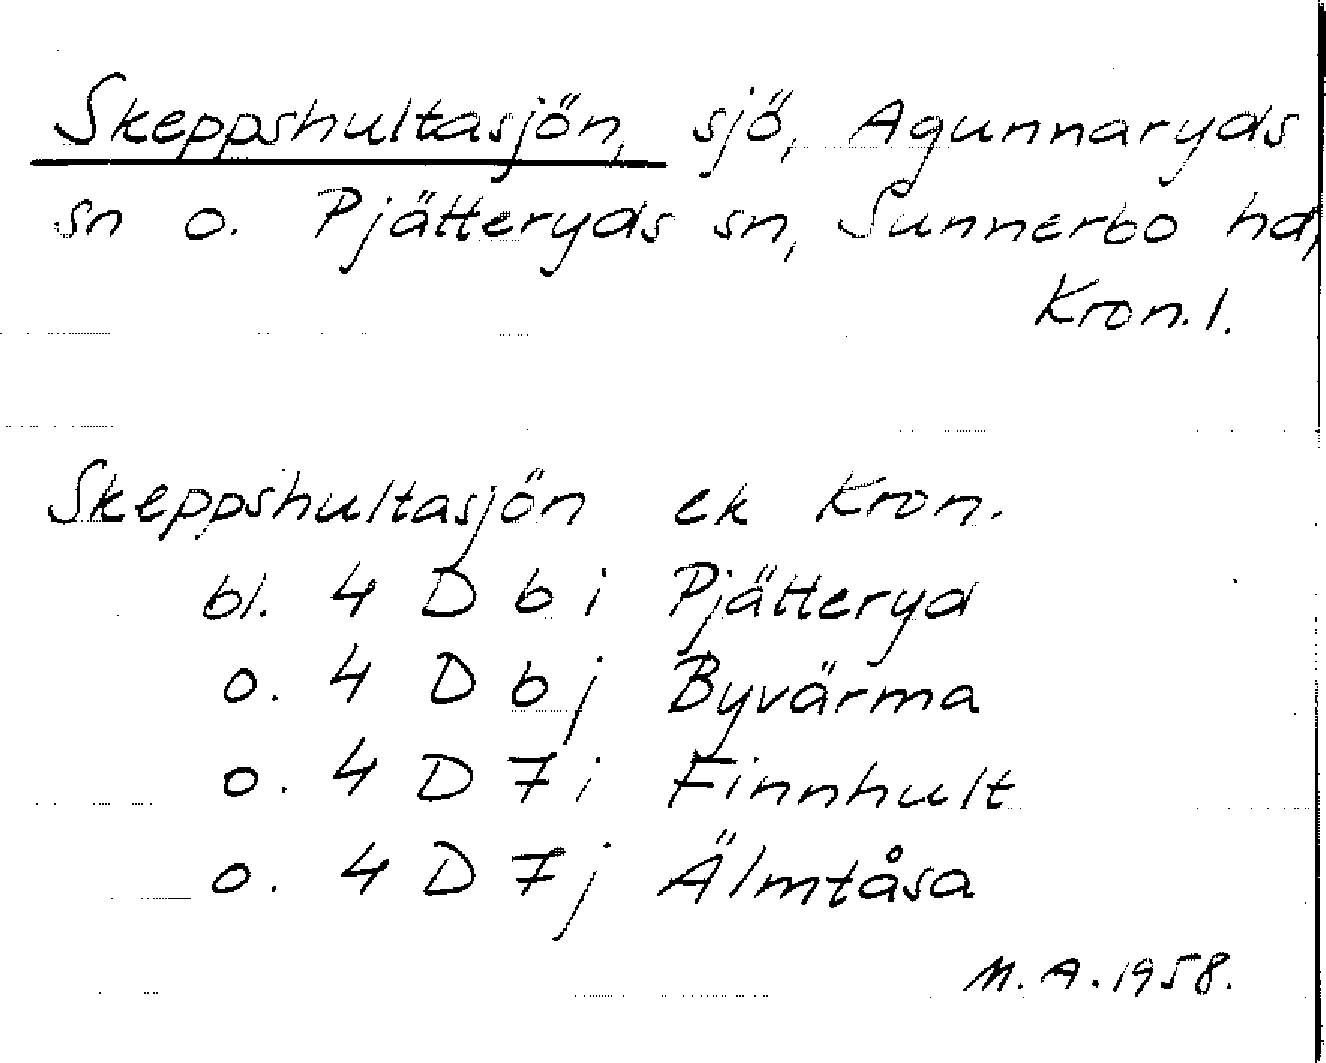 Skeppshultasjön, sjö, Agunnaryds
sn o. Pjätteryds sn, Sunnerbo hd,
Kron. l.
Skeppshultasjön ek Kron.
bl. 4 D 6 i Pjätteryd
o. 4 D 6 j Byvärma
o. 4 D 7 i Finnhult
o. 4 D 7 j Älmtåsa
M. A. 1958.